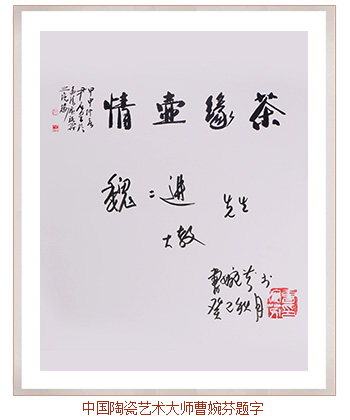 茶缘壶情
魏二進先生
大教
曹婉芬书
癸巳秋月
中国陶瓷艺术大师曹婉芬题字